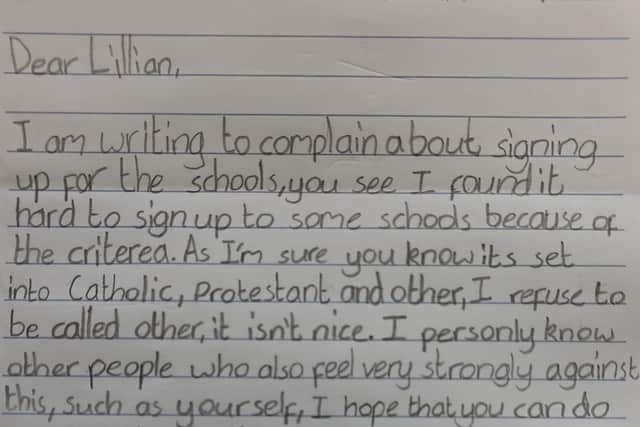 Dear Lillian,
I am writing to complain about, signing
up for the schools, you see I found it
hard to sign up to some schools because of
the criterea. As I'm sure you know its set
into Catholic, Protestant and other, I refuse to
be called other, it isn't nice. I personly know
other people who also feel very strongly against
this, such as yourself, I hope that you can do